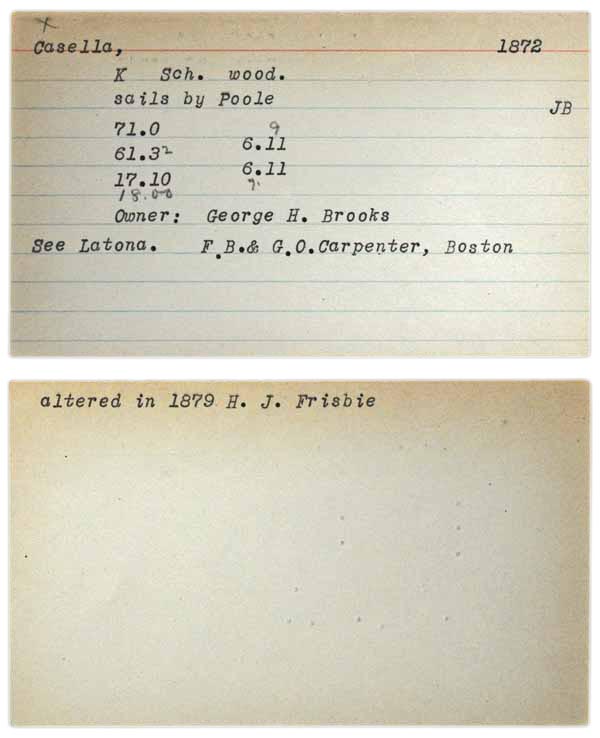 x
Casella, 1872
K Sch. wood.
sails by Poole
JB
71.0 9
6.11
61.3 2
6.11
17.10 9.
18.00
Owner: George H. Brooks
See Latona. F.B.& G.O.Carpenter, Boston
altered in 1879 H. J. Frisbie